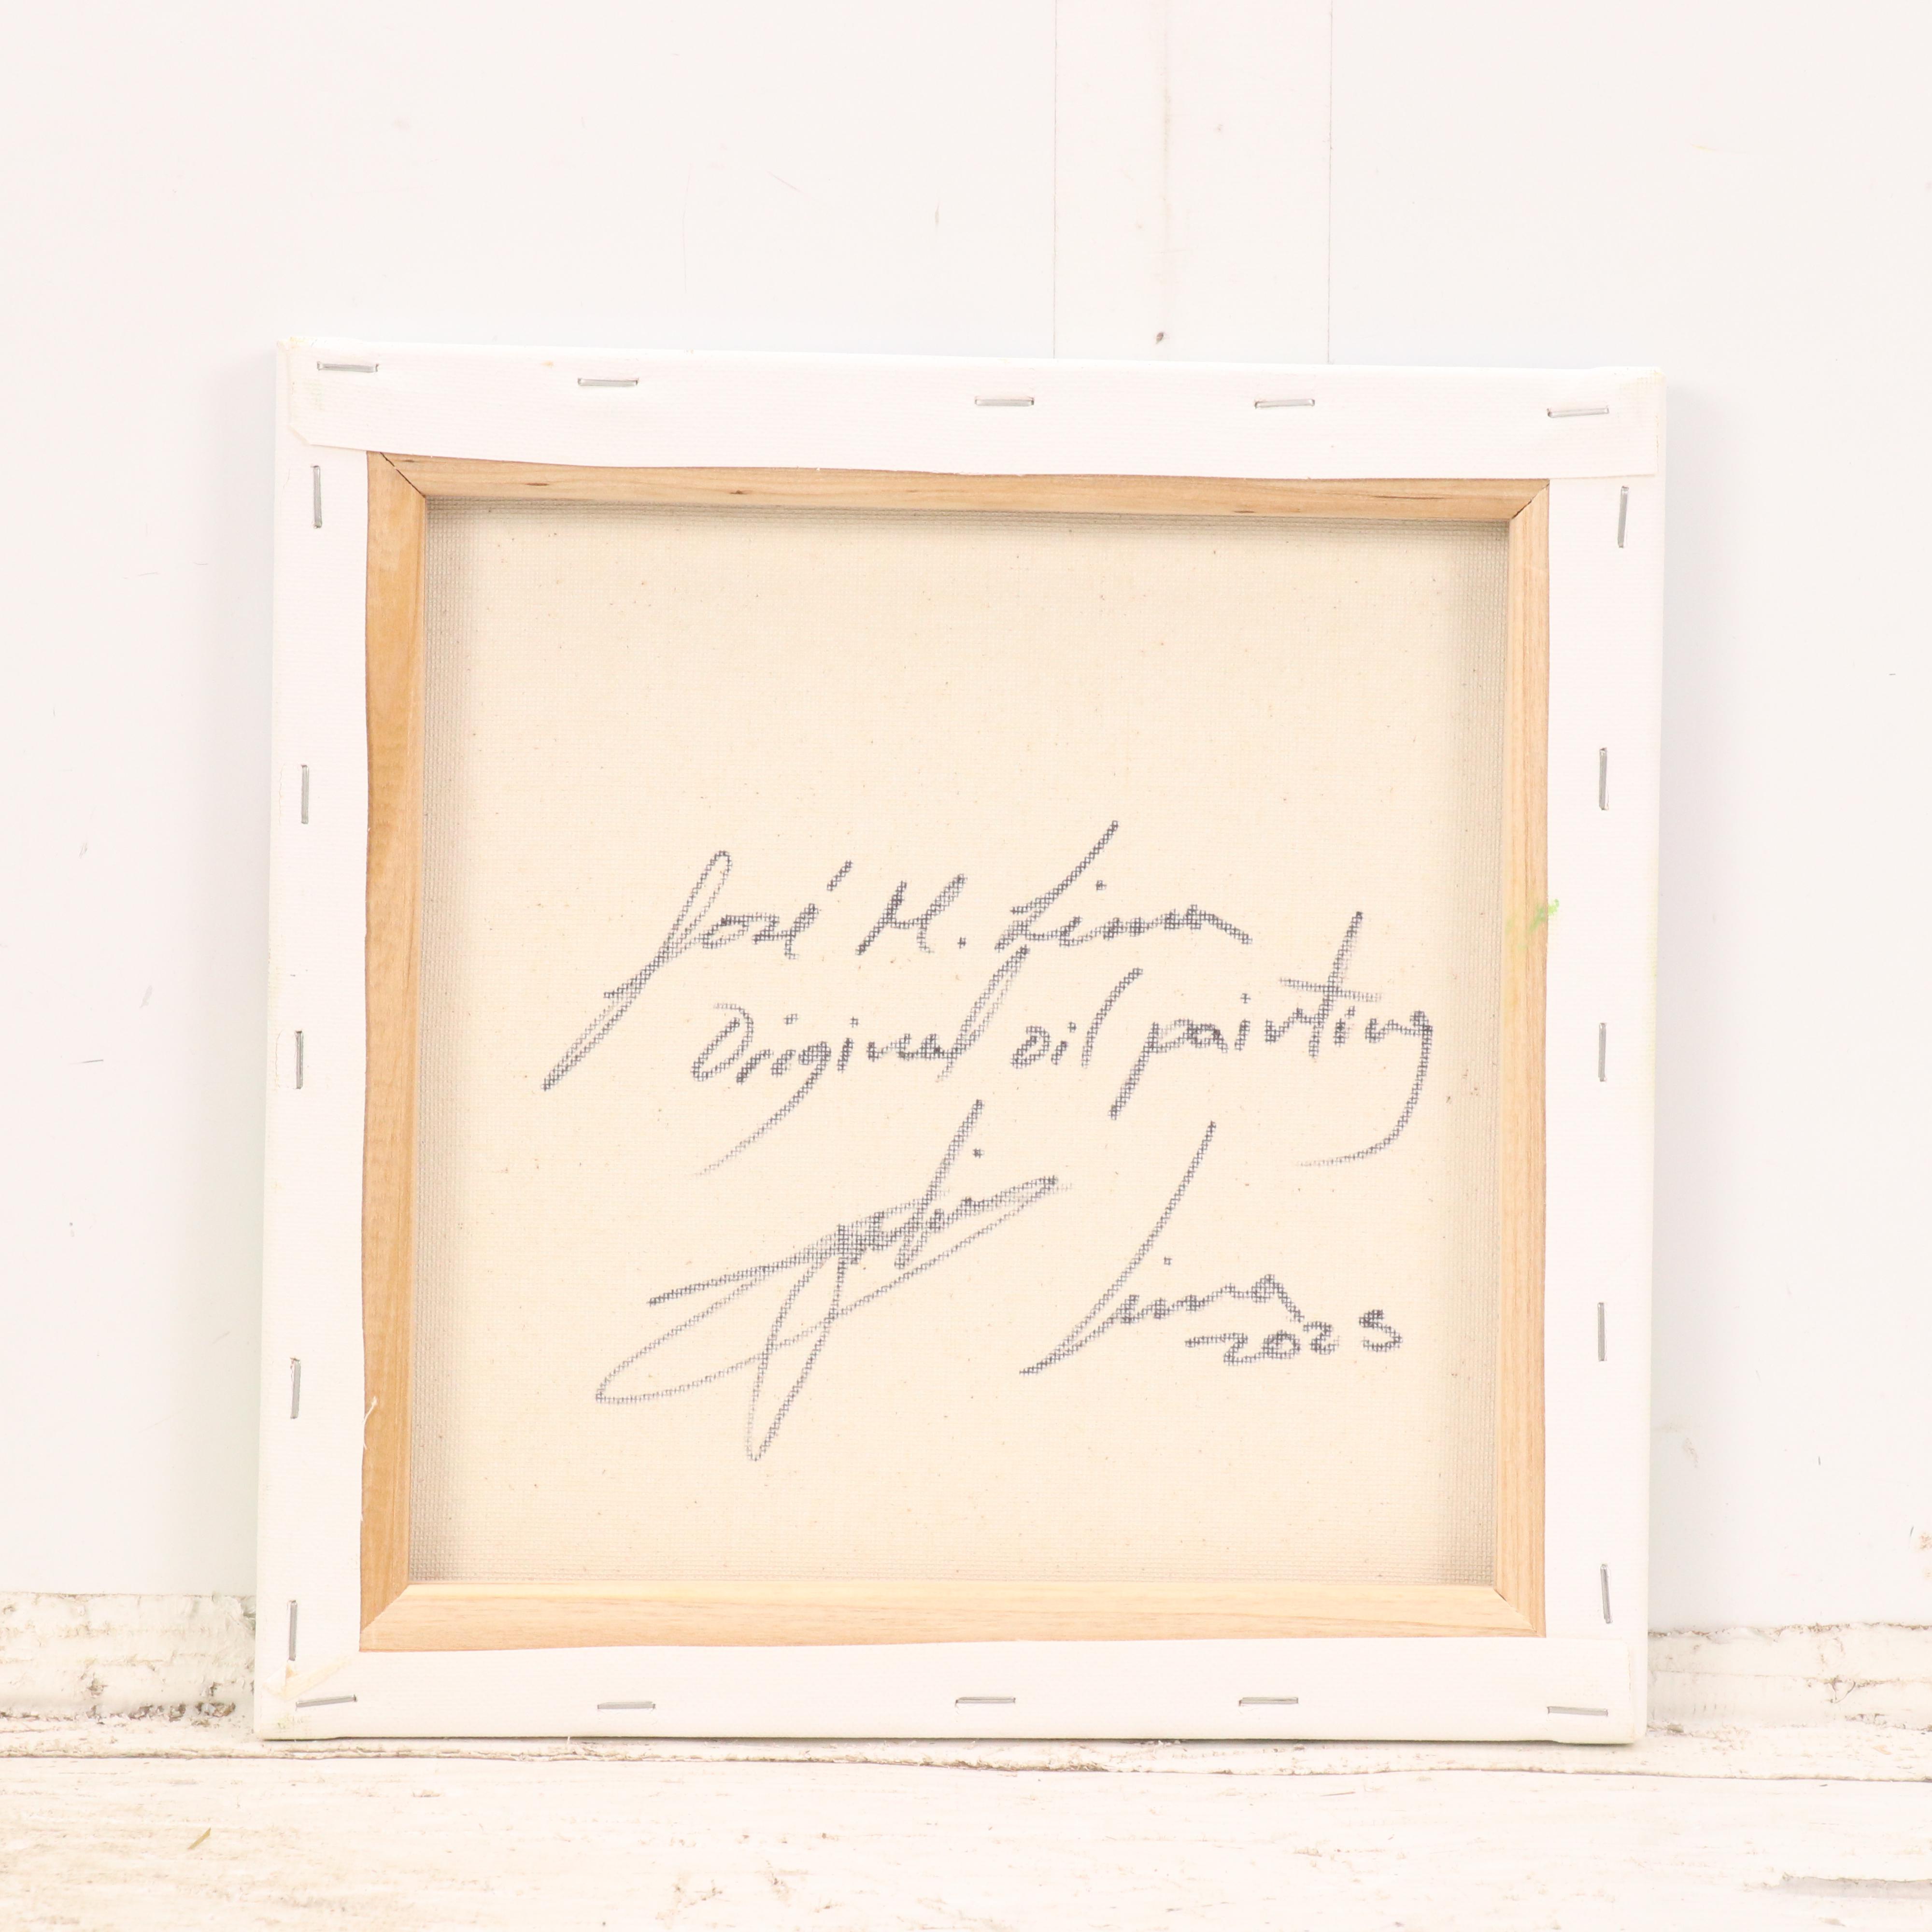 José M. Lima
Original oil painting
Lima
2023